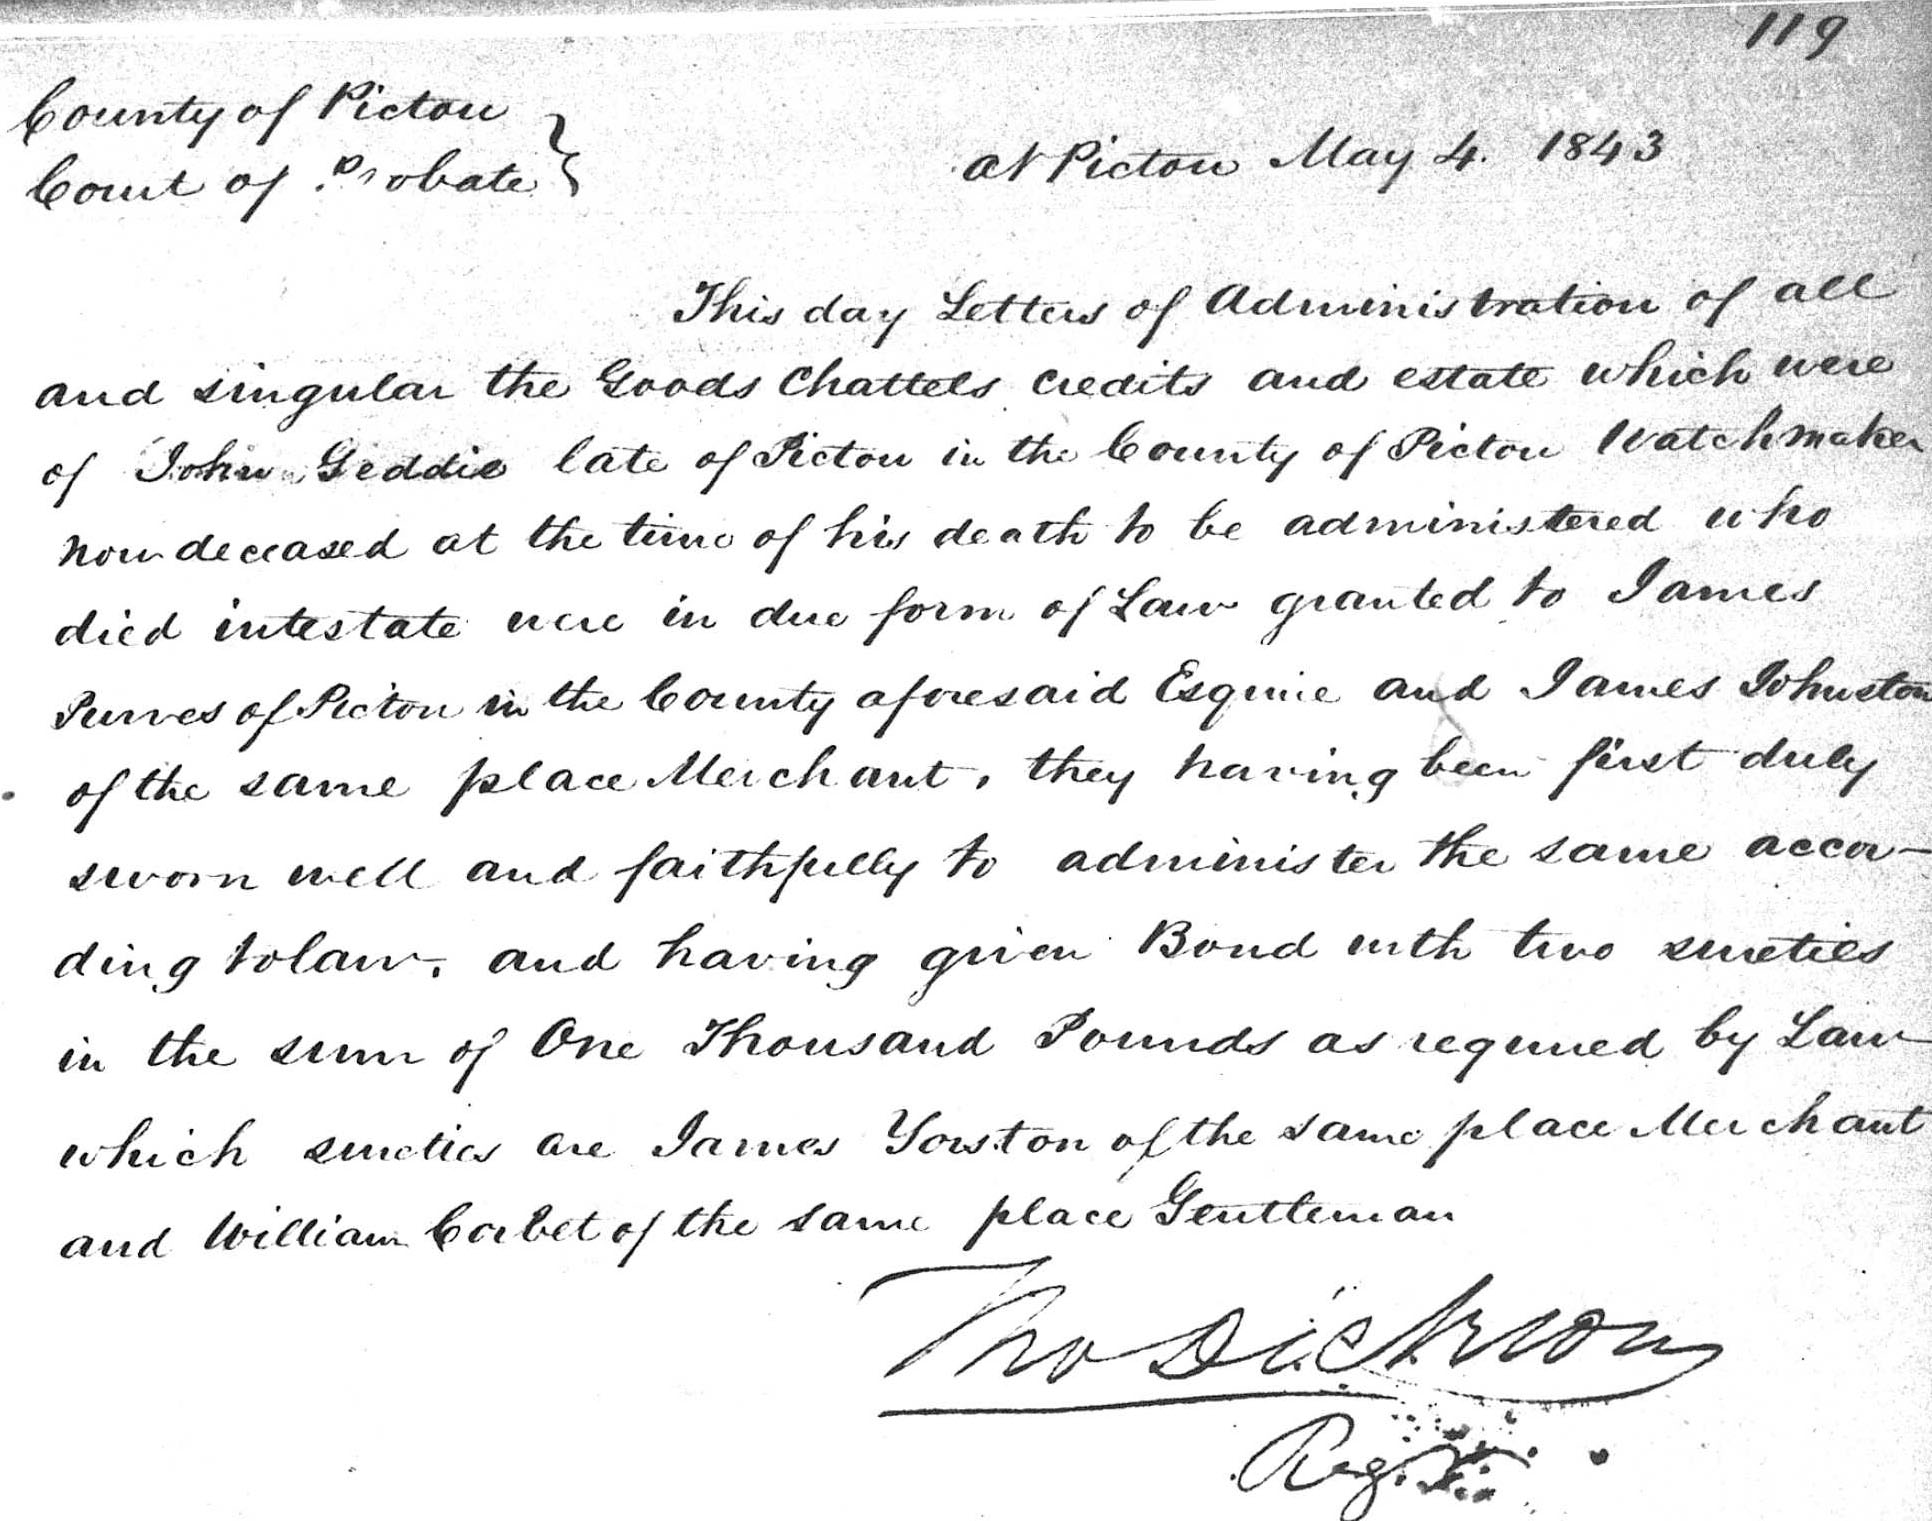 119
County of Pictou
Court of Probate
at Pictou May 4. 1843
This day Letters of Administration of all
and singular the Goods Chattels credits and estate which were
of John Geddie late of Pictou in the County of Pictou Watchmaker
now deceased at the time of his death to be administered who
died intestate were in due form of Law granted to James
Purves of Pictou in the County aforesaid Esquire and James Johnston
of the same place Merchant, they having been first duly
sworn well and faithfully to administer the same accor-
ding to law. and having given Bond with two sureties
in the sum of One Thousand Pounds as required by Law
which sureties are James Yorston of the same place Merchant
and William Corbet of the same place Gentleman
Tho Dickson
Reg.